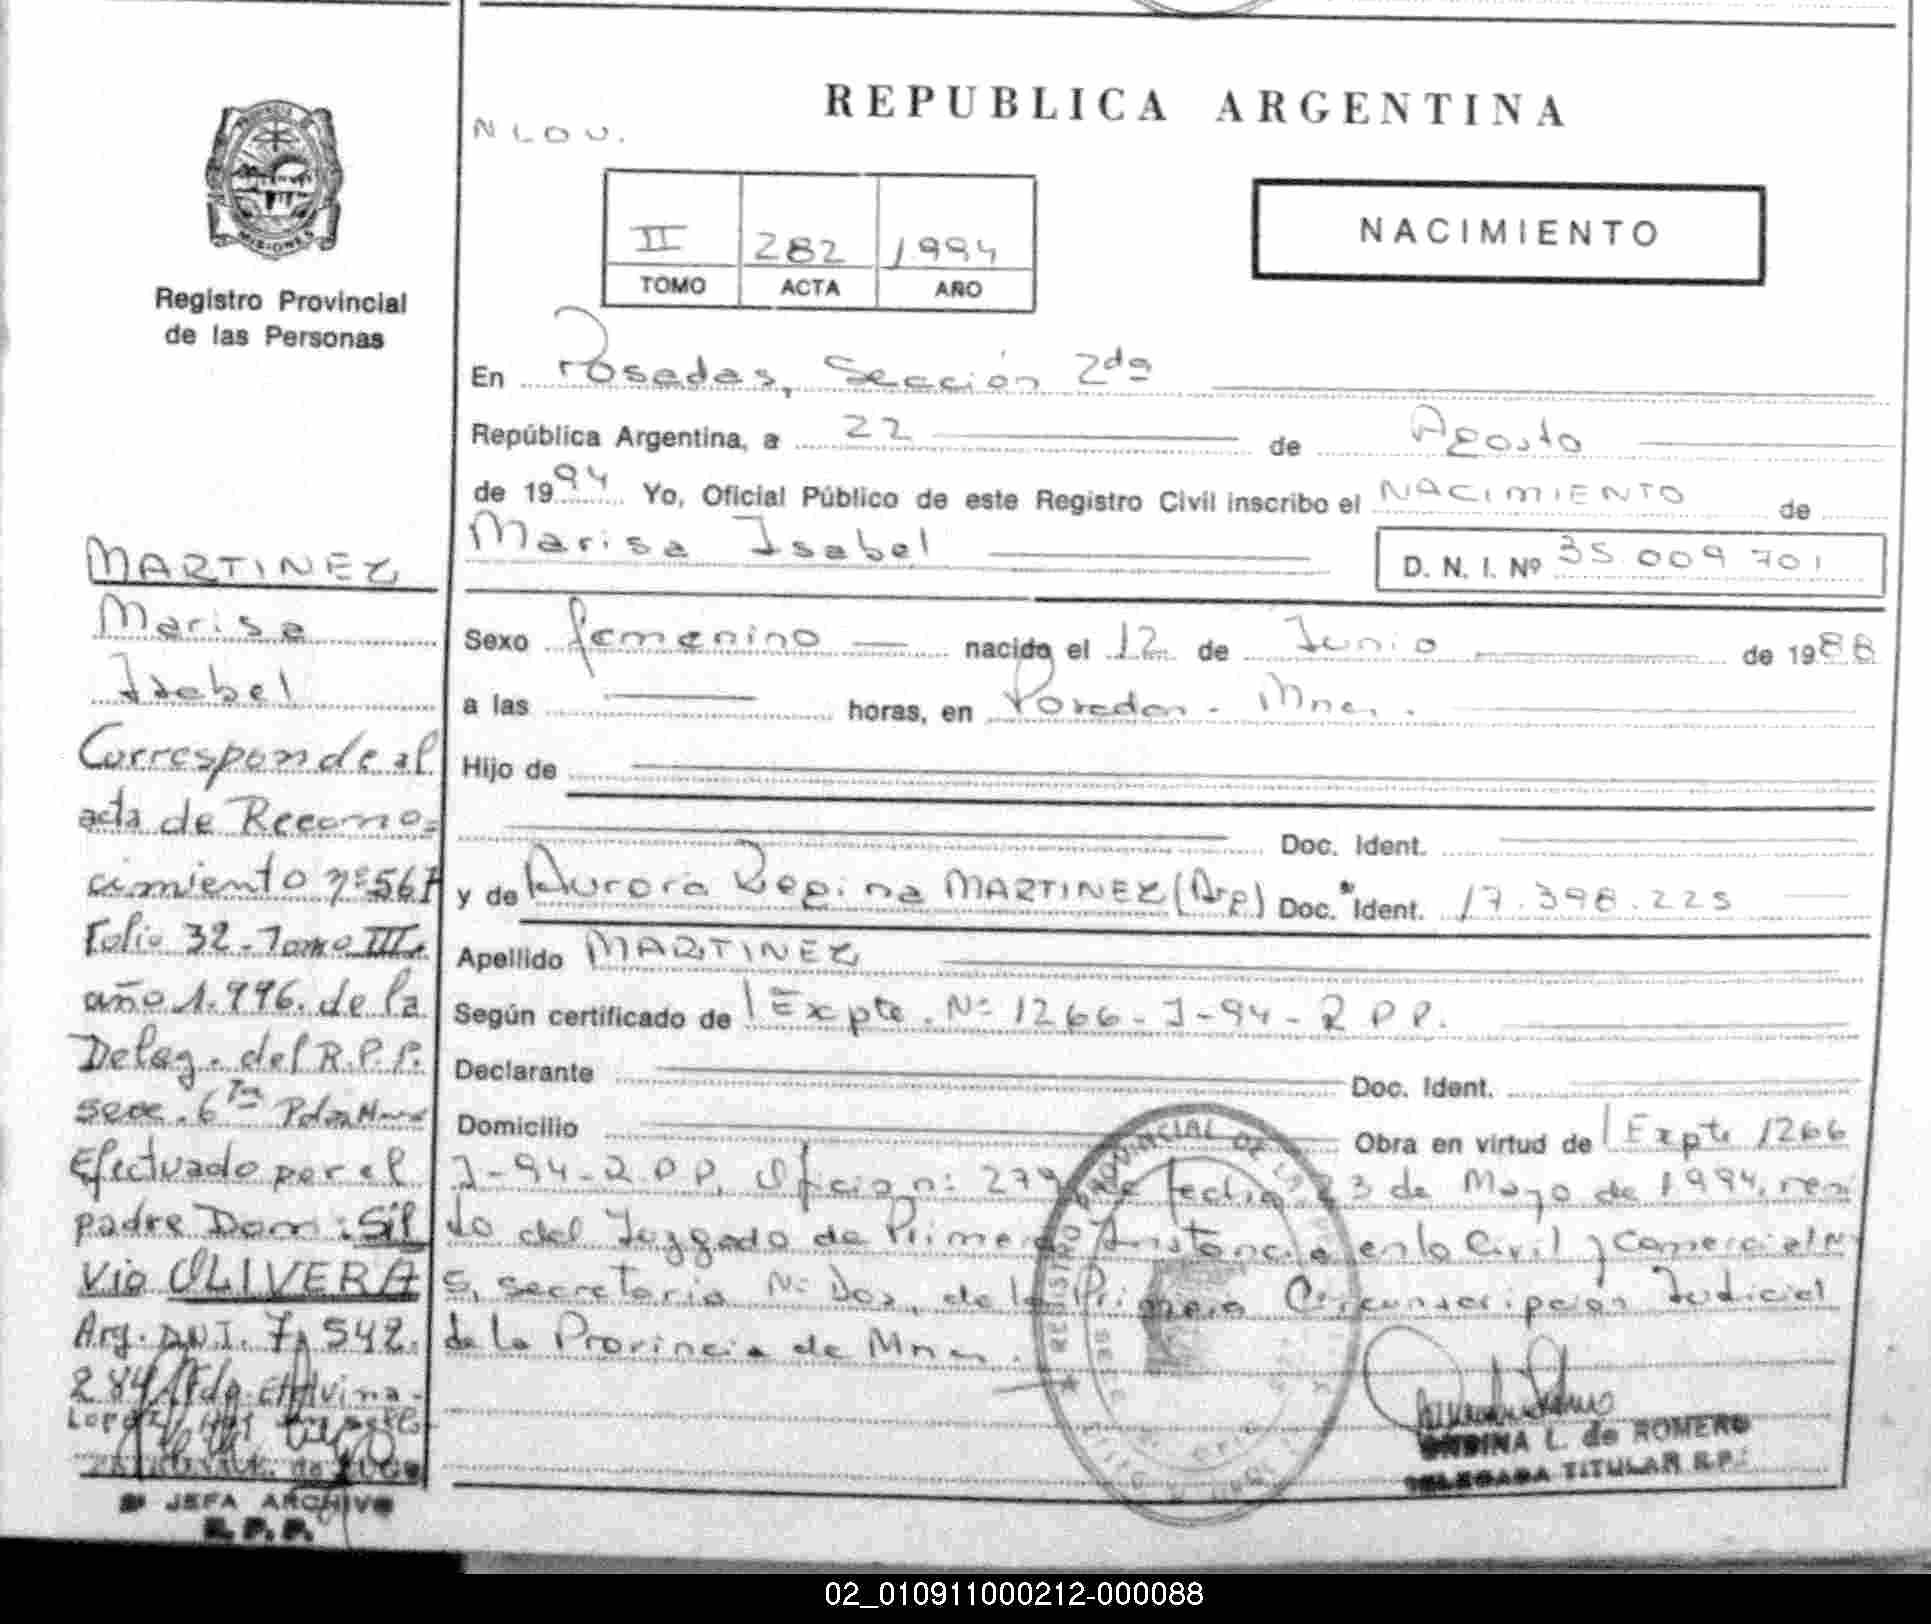 REPUBLICA ARGENTINA
N L O U.
MISIONES
Registro Provincial
de las Personas
II 282 1.994
TOMO ACTA AÑO
NACIMIENTO
En Posadas, Sección 2da
República Argentina, a 22 de Agosto
de 1994 Yo, Oficial Público de este Registro Civil inscribo el NACIMIENTO de
Marisa Isabel D. N. I. Nº 35.009.701
Sexo femenino nacido el 12 de Junio de 1988
a las horas, en Posadas - Mnes.
Hijo de
Doc. Ident.
y de Aurora Regina MARTINEZ (Arg) Doc. Ident. 17.398.225
Apellido MARTINEZ
Según certificado de Expte. Nº 1266-J-94-R P P.
Declarante Doc. Ident.
Domicilio Obra en virtud de Expte 1266
J-94-R.P.P. Oficio nº 279 de fecha 23 de Mayo de 1994,
do del Juzgado de Primera Instancia en lo Civil y Comercial Nº
5, secretaria Nº Dos, de la Primera Circunscripción Judicial
de la Provincia de Mnes.
ONDINA L. de ROMERO
DELEGADA TITULAR R.P.
MARTINEZ
Marisa
Isabel
Corresponde al
acta de Recono=
cimiento nº 567
Folio 32. Tomo III.
año 1.996. de la
Deleg. del R.P.P.
secc. 6ta Pdas Mnes
Efectuado por el
padre Dom: Sil
vio OLIVERA
Arg. D.N.I. 7.542.
284 Fdo. Etelvina
Lopez
JEFA ARCHIVO
R. P. P.
02_010911000212-000088